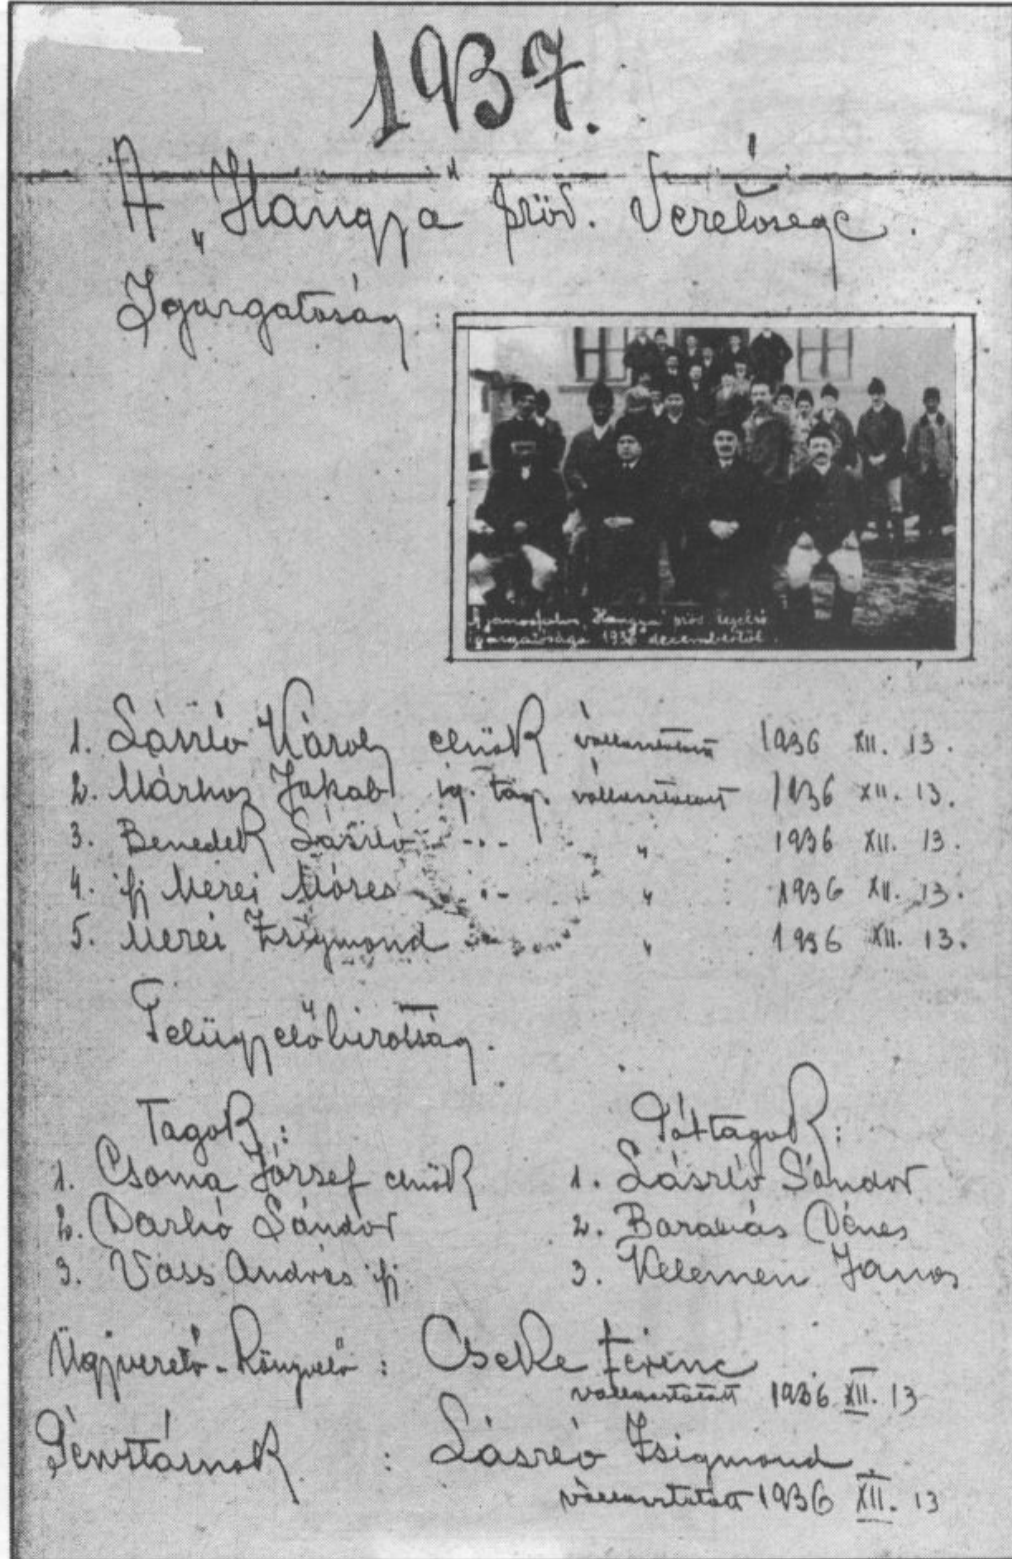 1937.
A „Hangya" szöv. Vezetősége.
Igazgatóság:
A jánosfalvi „Hangya" szöv. legelső
igazgatósága 1936 decembertől.
1. László Károly elnök választatott 1936 XII. 13.
2. Márkos Jakab ig. tag. választatott 1936 XII. 13.
3. Benedek László -"- " 1936 XII. 13.
4. ifj Merei Mózes -"- " 1936 XII. 13.
5. Merei Zsigmond -"- " 1936 XII. 13.
Felügyelőbizottság.
Tagok: Póttagok:
1. Csoma József elnök 1. László Sándor
2. Darkó Sándor 2. Barabás Dénes
3. Vass András ifj 3. Kelemen János
Ügyvezető-Könyvelő: Cseke Ferenc
választatott 1936 XII. 13
Pénztárnok : László Zsigmond
választatott 1936 XII. 13